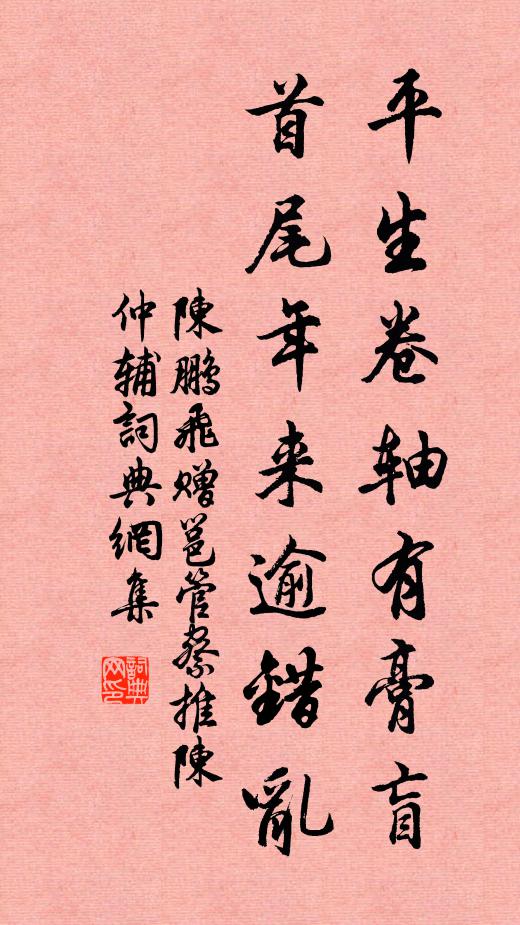 平生卷轴有膏肓
首尾年来逾錯亂
陳鵬飛赠邕管察推陳
仲辅詞典網集
詞典网印